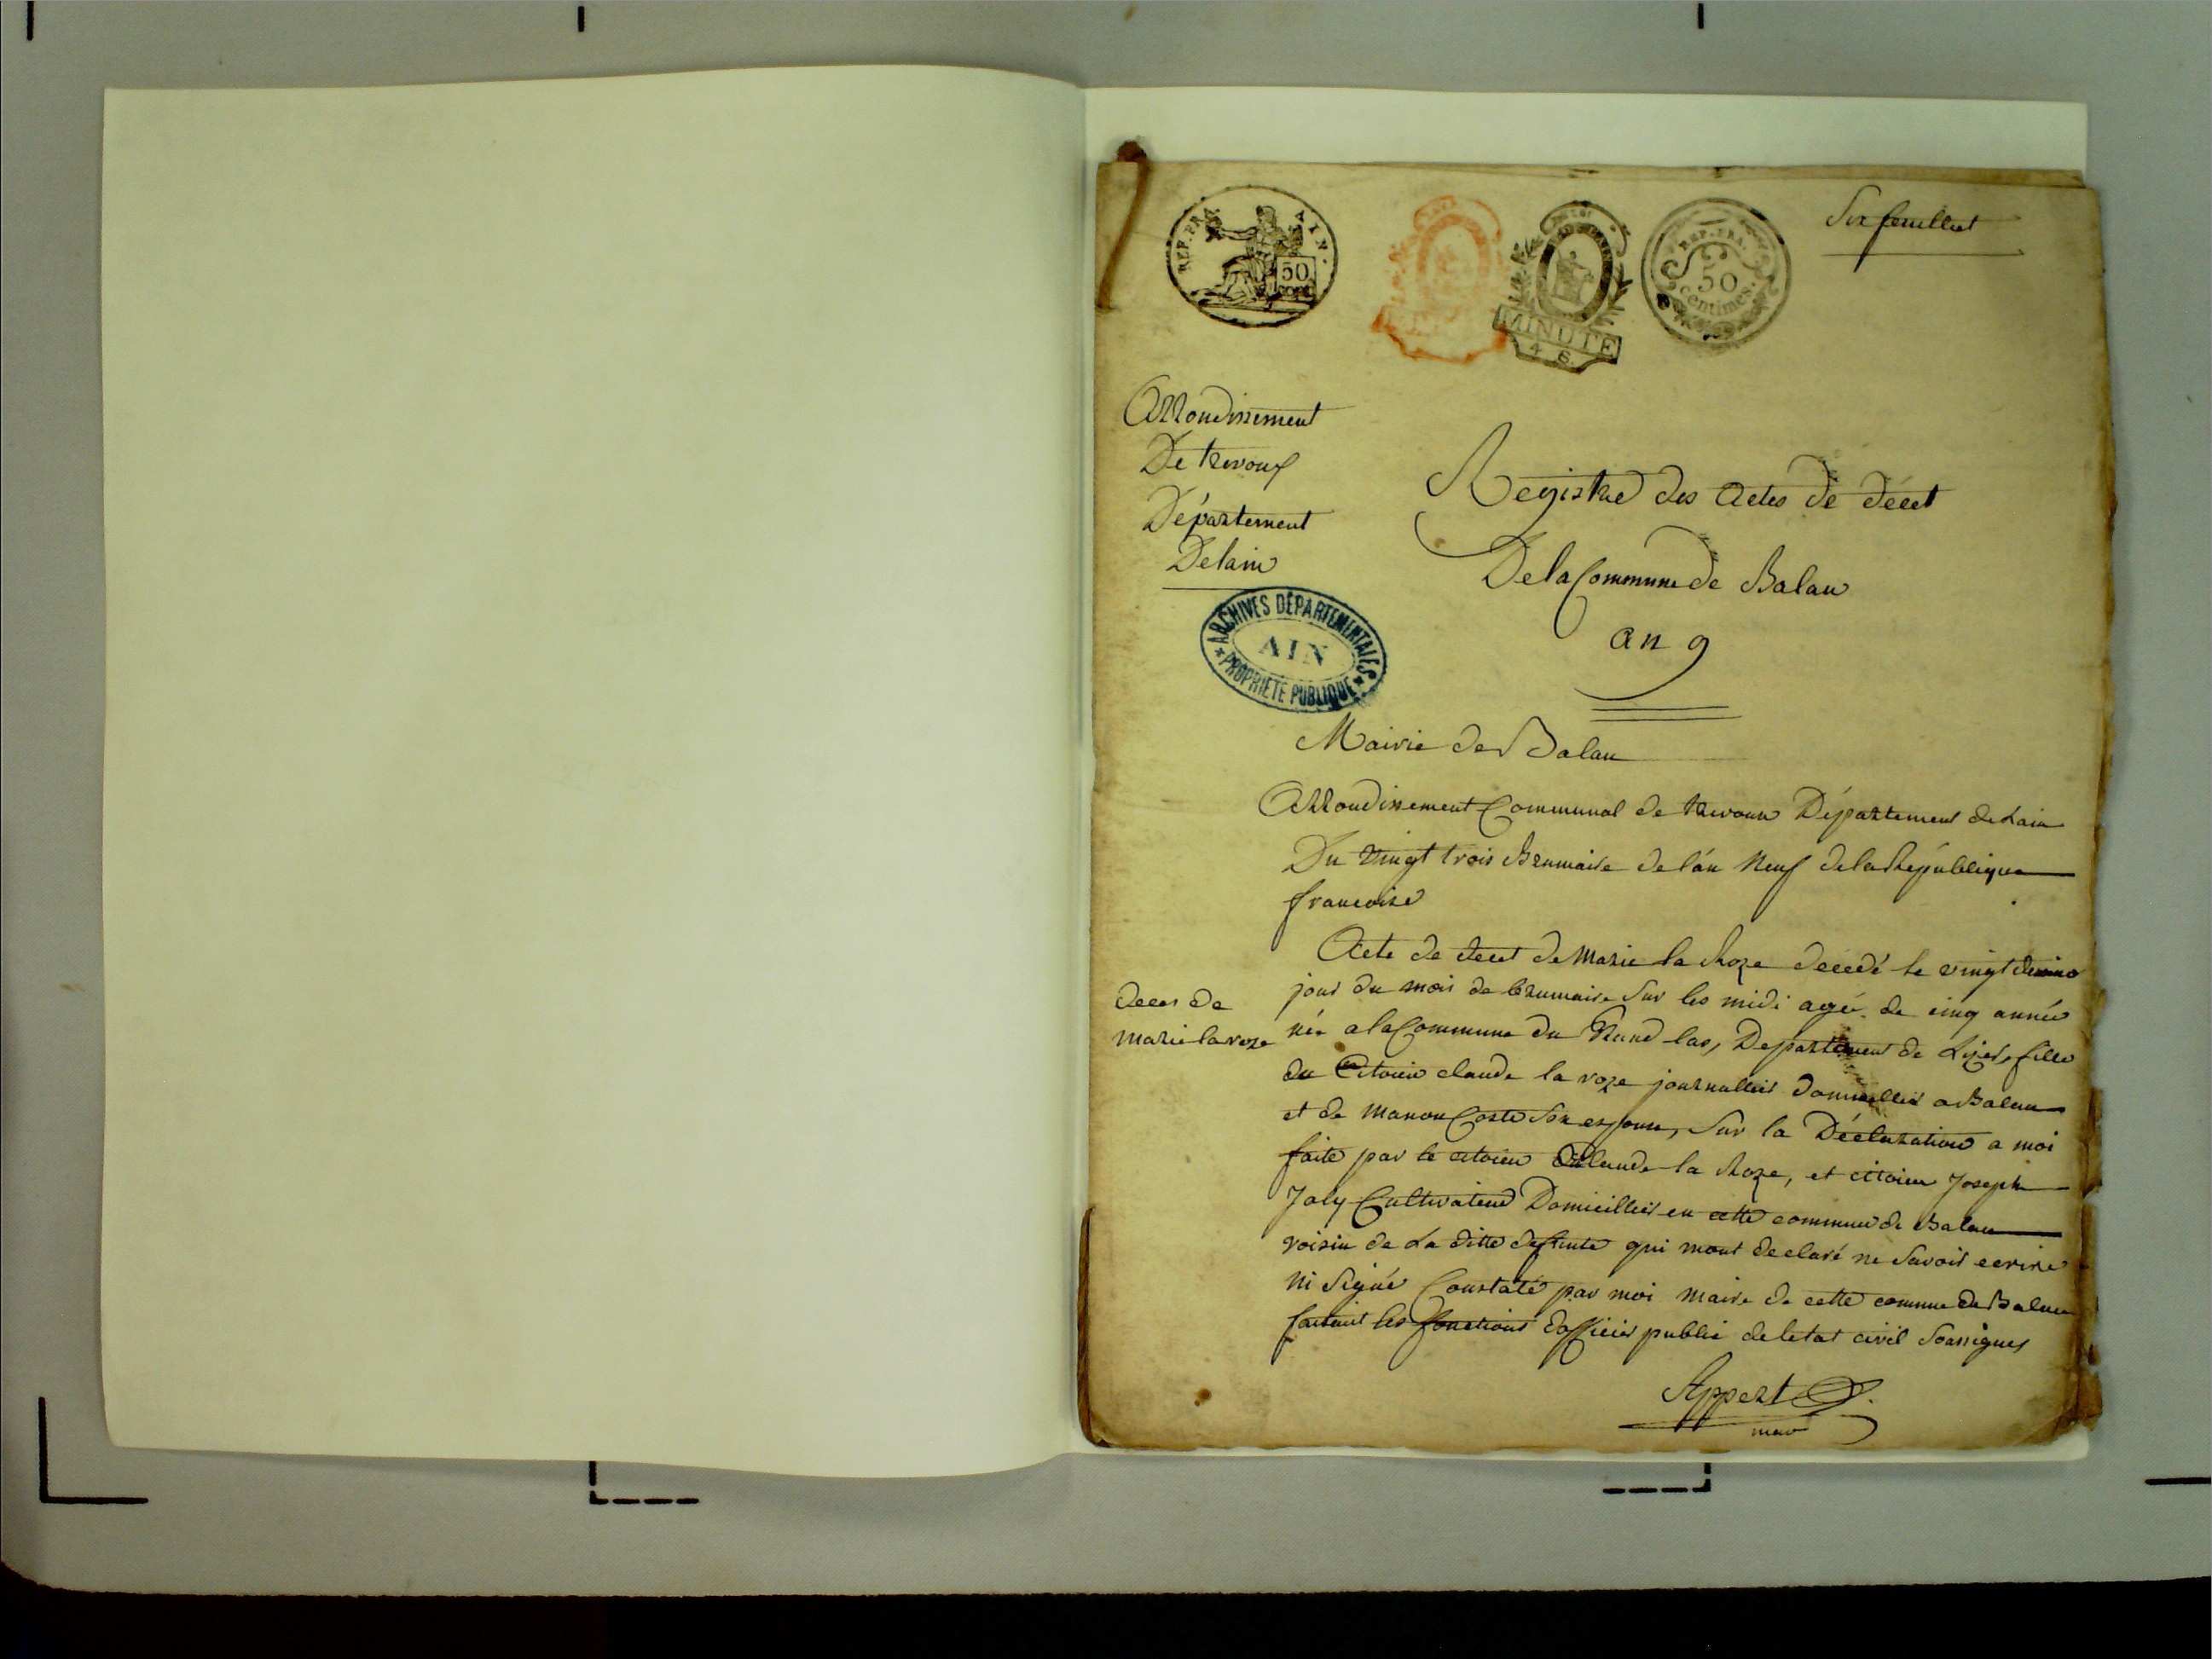 Six feuillet
REP. FRA. AIN.
50
MINUTE
4 S.
REP. FRA.
50
Centimes.
Arrondissement
De trevoux
Département
Delain
ARCHIVES DÉPARTEMENTALES
AIN
PROPRIÉTÉ PUBLIQUE
Registre des Actes de décet
De la Commune de Balan
an 9
Mairie de Balan
Arrondissement Communal de trevoux Département de Lain
Du vingt trois Brumaire de l'an Neuf de la République
francoise
Acte de decet de Marie la Roze decedé le vingt
jour du mois de brumaire sur les midi agé de cinq année
née a la Commune du Grand las, Departement de Lizer, fille
du Citoien claude la roze journallier domicillié a Balan
et de Manon Coste son espouse, sur la Déclaration a moi
faite par le citoien Claude la Roze, et citoien Joseph
Joly Cultivateur Domicilliés en cette commune de Balan
voisin de La ditte defunte qui mont declaré ne savoir ecrire
ni signé Constaté par moi maire de cette commune de Balan
faisant les fonctions dofficier public de letat civil soussignes
Appert
deces de
Marie la roze